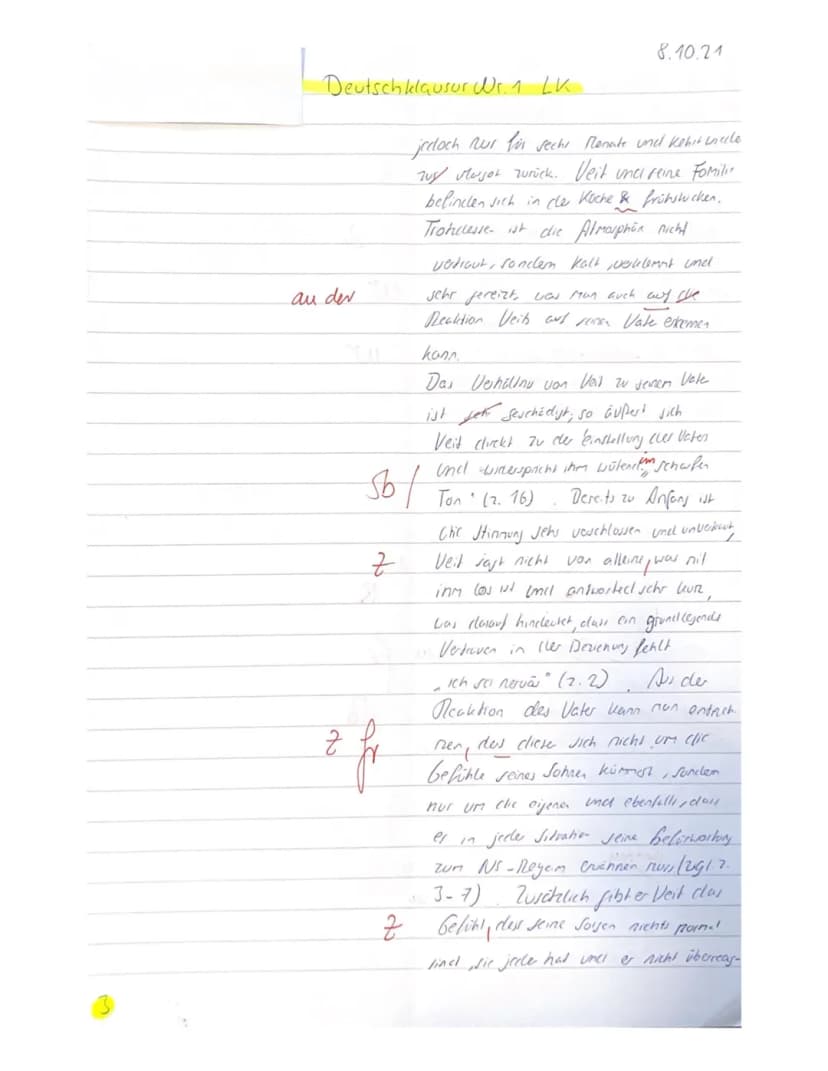 8.10.21
Deutschklausur Nr. 1 LK
jedoch nur für sechs Monate und kehrt wieder
zur zurück. Veit und seine Familie
befinden sich in der Küche & frühstücken.
Trotzdessen ist die Atmosphäre nicht
vertraut, sondern kalt, verklemmt und
an der
sehr gereizt, was man auch auf die
Reaktion Veits auf seinen Vater erkennen
kann.
Das Verhältnis von Veit zu seinem Vater
ist sehr geschädigt, so äußert sich
Veit direkt zu der Einstellung des Vaters
und widerspricht ihm wütend "im scharfen
Sb /
Ton" (Z. 16). Bereits zu Anfang ist
die Stimmung sehr verschlossen und unvertraut,
Z
Veit sagt nicht von alleine, was mit
ihm los ist und antwortet sehr kurz,
was darauf hindeutet, dass ein grundlegendes
Vertrauen in der Beziehung fehlt
"ich sei nervös" (Z. 2). Aus der
Reaktion des Vaters kann man entneh-
Z fr
men, das dieser sich nicht um die
Gefühle seines Sohnes kümmert, sondern
nur um die eigenen und ebenfalls, dass
er in jeder Situation seine Befürwortung
zum NS-Regeim erwähnen muss (vgl Z.
3-7). Zusätzlich gibt er Veit das
Z
Gefühl, dass seine Sorgen nichts normal
sind, sie jeder hat und er nicht überreag-
3